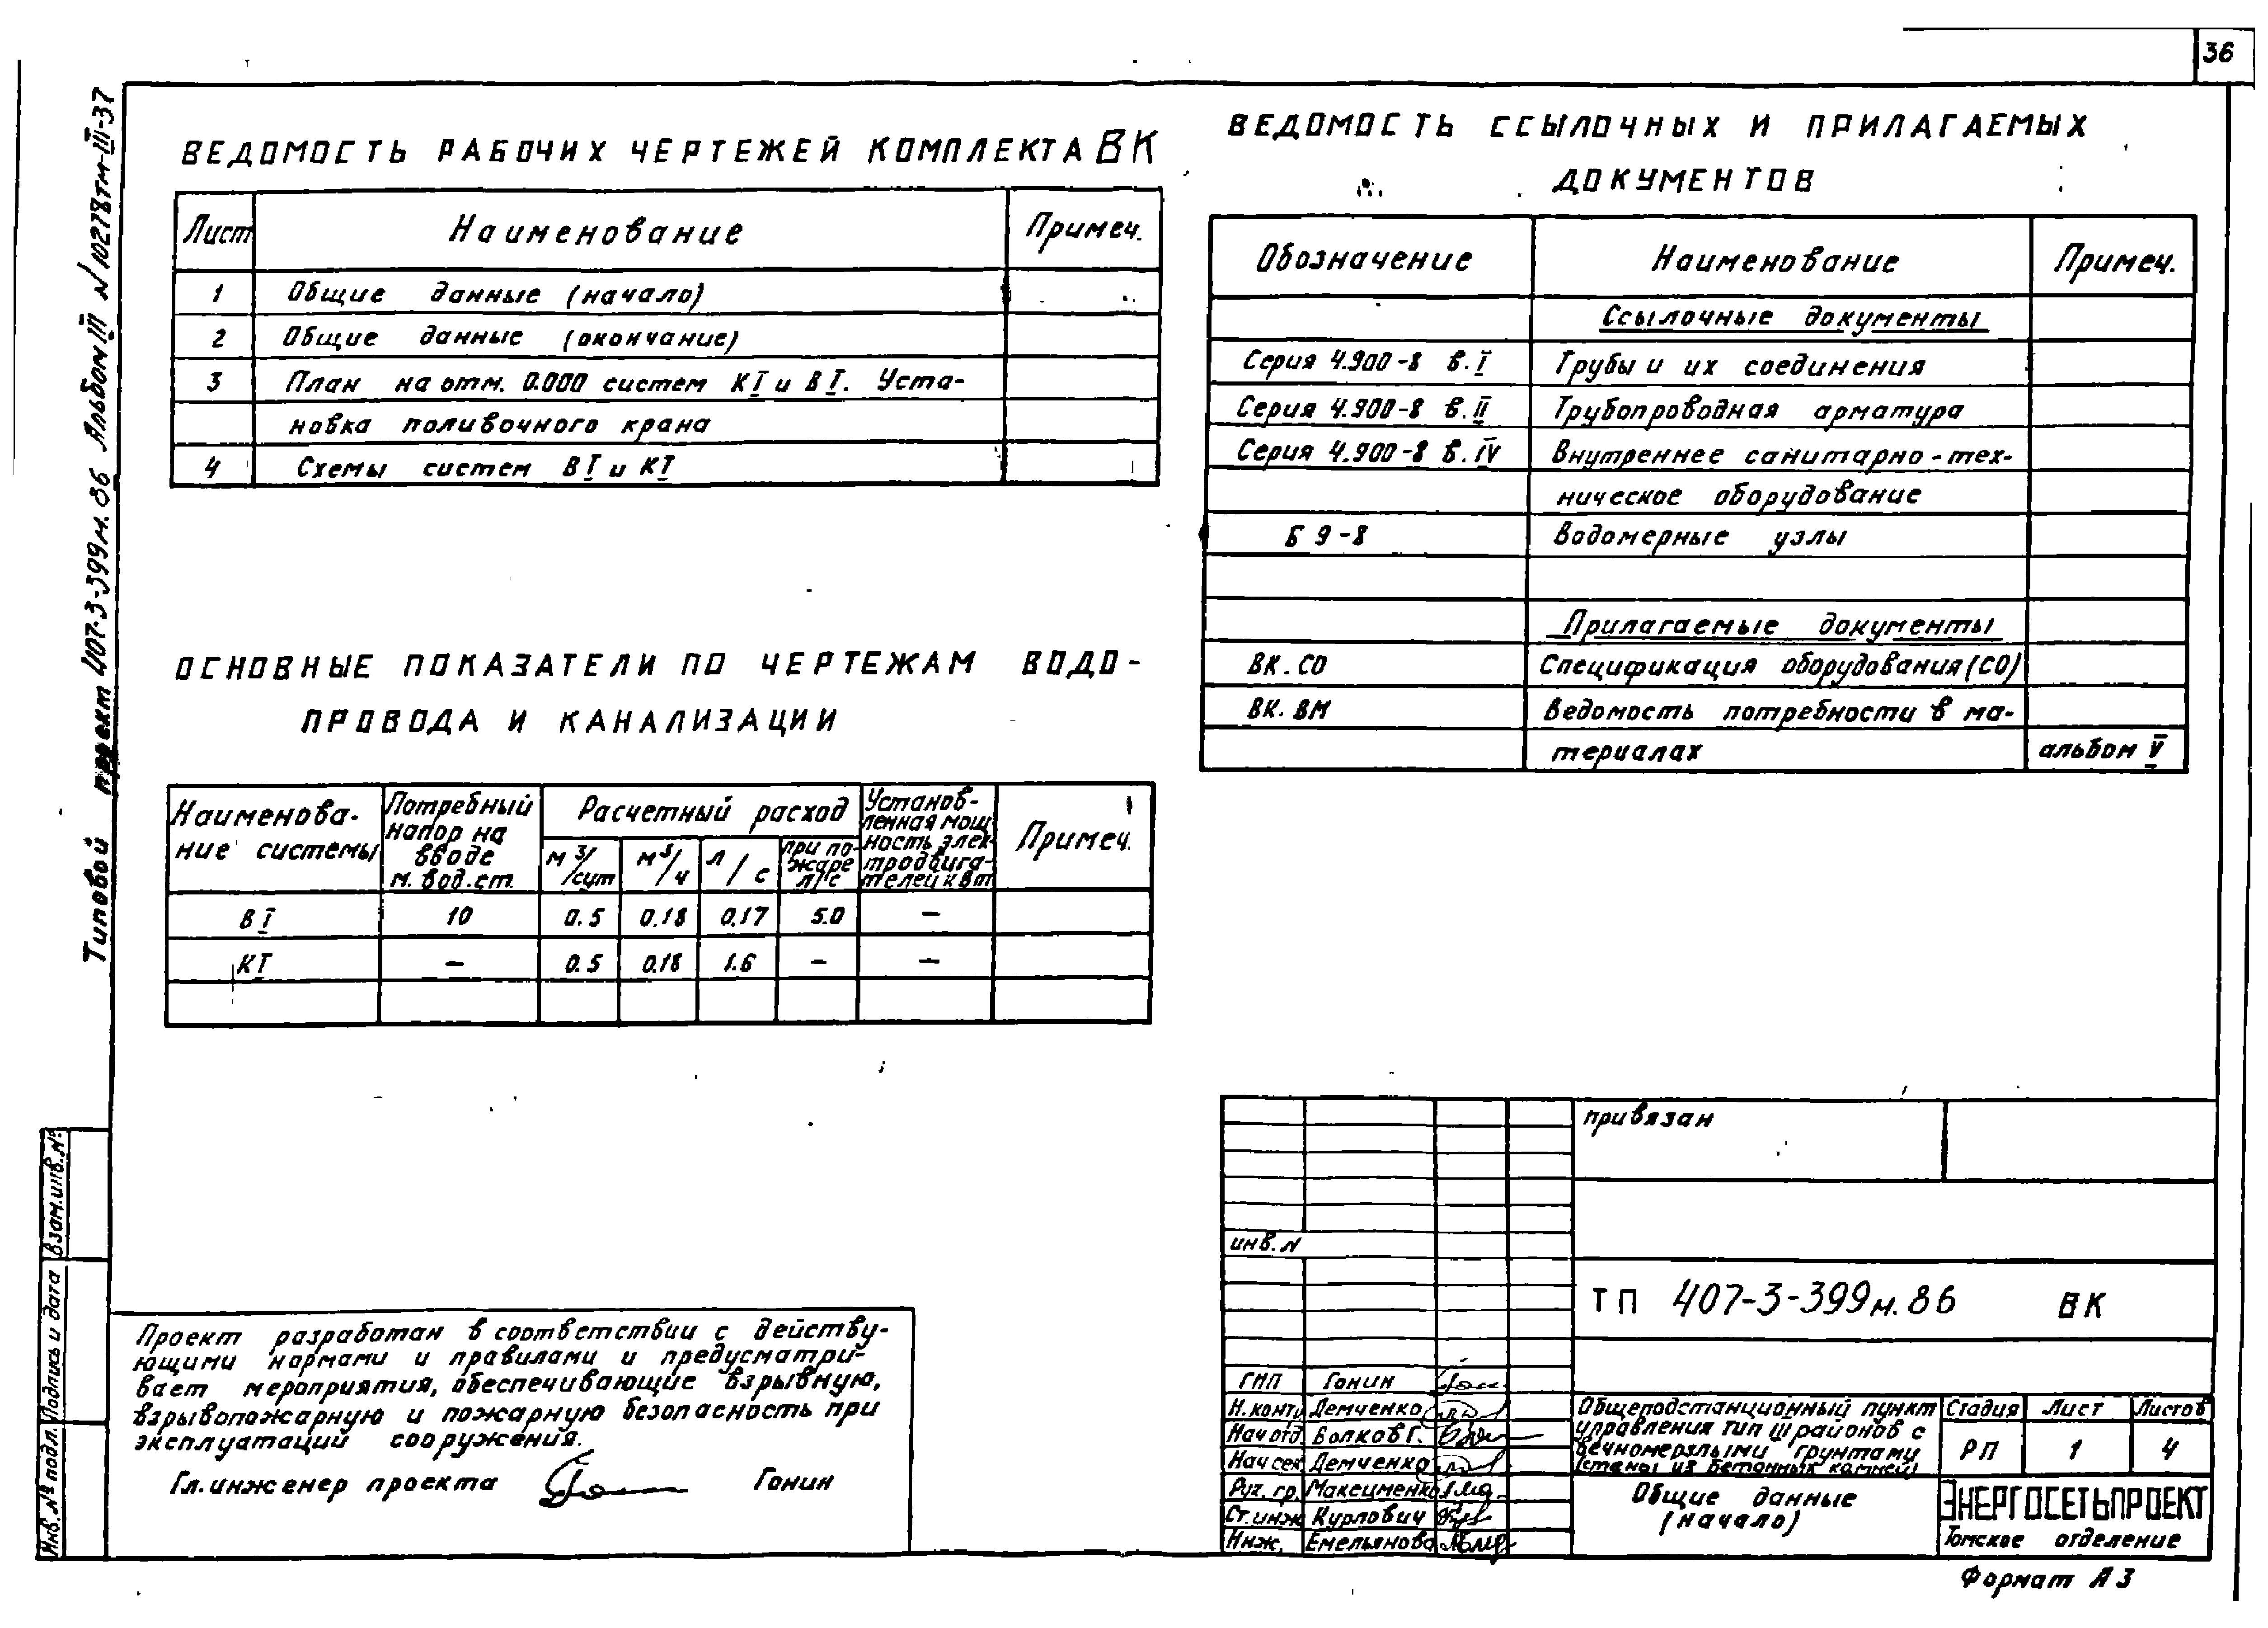 36
Типовой проект 407-3-399м.86 Альбом III N 10278тм-III-37
ВЕДОМОСТЬ РАБОЧИХ ЧЕРТЕЖЕЙ КОМПЛЕКТА ВК
Лист Наименование Примеч.
1 Общие данные (начало)
2 Общие данные (окончание)
3 План на отм. 0.000 систем КI и ВI. Уста-
новка поливочного крана
4 Схемы систем ВI и КI
ОСНОВНЫЕ ПОКАЗАТЕЛИ ПО ЧЕРТЕЖАМ ВОДО-
ПРОВОДА И КАНАЛИЗАЦИИ
Наименова-
ние системы
Потребный
напор на
вводе
м. вод.ст.
Расчетный расход
м³/сут
м³/ч
л/с
при по-
жаре
л/с
Установ-
ленная мощ-
ность элек-
тродвига-
телей кВт
Примеч.
ВI 10 0.5 0.18 0.17 5.0 —
КI — 0.5 0.18 1.6 — —
ВЕДОМОСТЬ ССЫЛОЧНЫХ И ПРИЛАГАЕМЫХ
ДОКУМЕНТОВ
Обозначение Наименование Примеч.
Ссылочные документы
Серия 4.900-8 в.I Трубы и их соединения
Серия 4.900-8 в.II Трубопроводная арматура
Серия 4.900-8 в.IV Внутреннее санитарно-тех-
ническое оборудование
Б 9-8 Водомерные узлы
Прилагаемые документы
ВК.СО Спецификация оборудования(СО)
ВК.ВМ Ведомость потребности в ма-
териалах альбом V
Проект разработан в соответствии с действу-
ющими нормами и правилами и предусматри-
вает мероприятия, обеспечивающие взрывную,
взрывопожарную и пожарную безопасность при
эксплуатации сооружения.
Гл.инженер проекта Гонин
Инв.№ подл. Подпись и дата Взам.инв.№
привязан
инв.N
ТП 407-3-399м.86 ВК
ГИП Гонин
Н.конт. Демченко
Нач отд. Волков Г.
Нач сек. Демченко
Рук. гр. Максименко
Ст.инж. Курлович
Инж. Емельянова
Общеподстанционный пункт
управления тип III районов с
вечномерзлыми грунтами
(стены из бетонных камней)
Стадия Лист Листов
РП 1 4
Общие данные
(начало)
ЭНЕРГОСЕТЬПРОЕКТ
Томское отделение
Формат А3